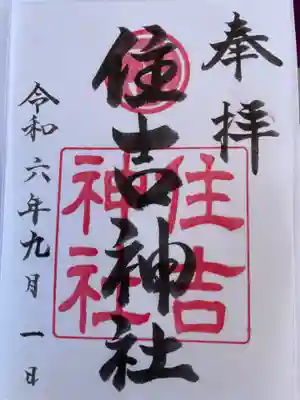 奉拝
住吉神社
住吉
神社
令和六年九月一日